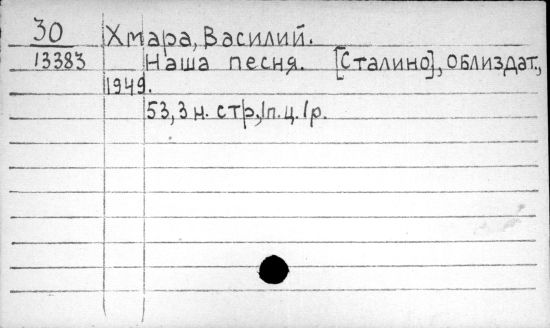 30 Хмара, Василий.
13383 Наша песня. [Сталино], облиздат.,
1949.
53, 3 н. стр., п. ц. 1 р.